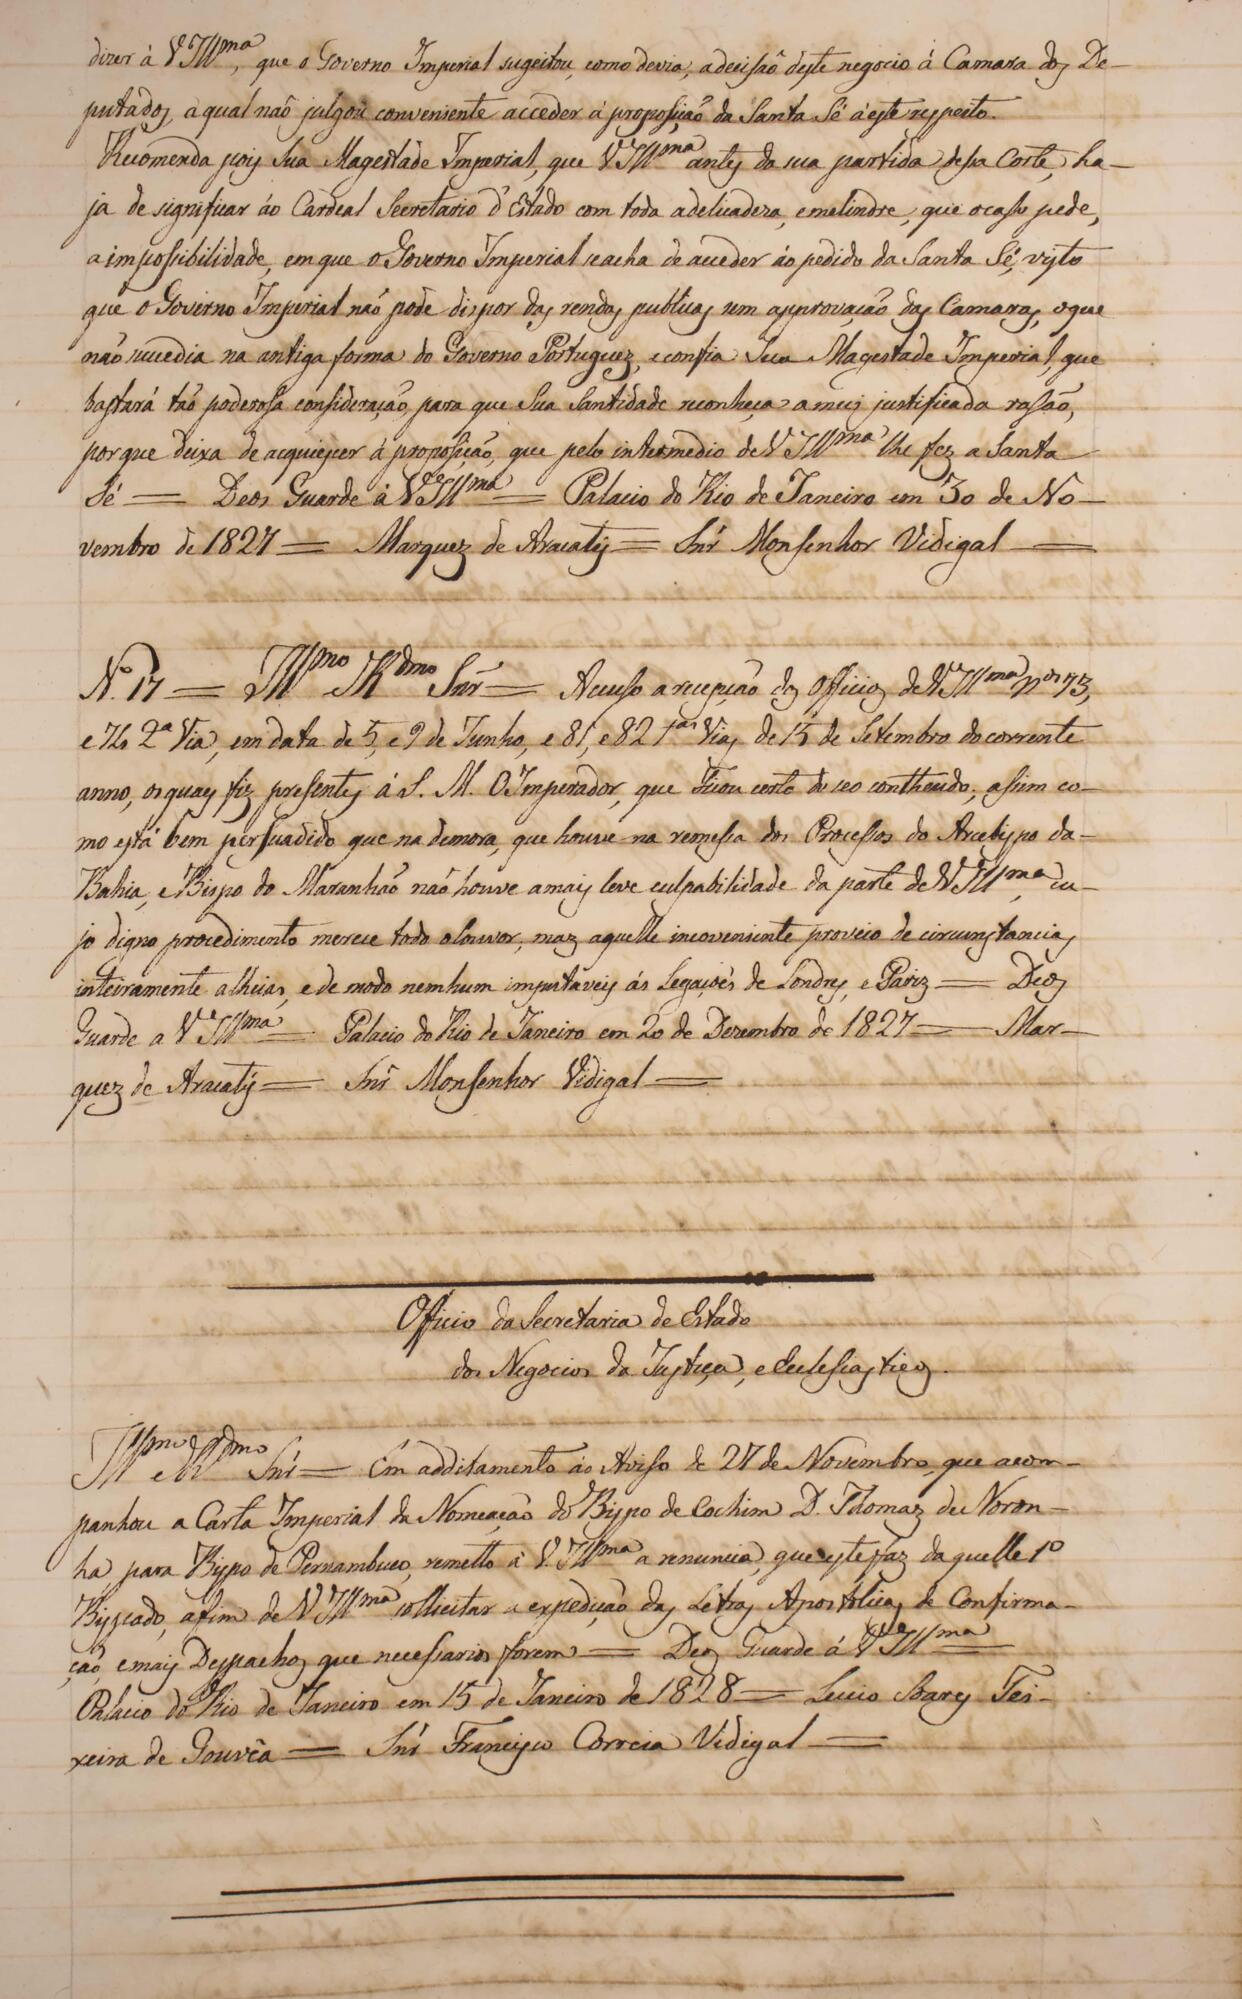 dizer á V.Illma, que o Governo Imperial sugeitou, como devia, a decisaõ deste negocio á Camara dos De-
putados, a qual naõ julgou conveniente acceder á proposiçaõ da Santa Sé á este respeito.
Recomenda pois Sua Magestade Imperial, que V.Illma antes da sua partida dessa Corte, ha-
ja de significar ào Cardeal Secretario d'Estado com toda a delicadeza, e melindre, que o caso pede,
a impossibilidade, em que o Governo Imperial se acha de acceder ào pedido da Santa Sé, visto
que o Governo Imperial naõ pode dispor das rendas publicas sem approvaçaõ das Camaras, o que
naõ succedia na antiga forma do Governo Portuguez, e confia Sua Magestade Imperial, que
bastará taõ poderosa consideraçaõ, para que Sua Santidade reconheça a mais justificada rasaõ,
porque deixa de acquiescer á proposiçaõ, que pelo intermedio de V Illma lhe fez a Santa
Sé = Deos Guarde á V.Illma = Palacio do Rio de Janeiro em 30 de No-
vembro de 1827 = Marquez de Aracaty = Snr Monsenhor Vidigal =
No. 17 = Illmo Rdmo Snr = Accuso a recepçaõ dos Officios de V Illma nos 73,
e 74 2a Via, em data de 5, e 9 de Junho, e 81, e 82 1as Vias de 15 de Setembro do corrente
anno, os quaes fiz presentes á S. M. O Imperador, que ficou certo do seo contheudo; assim co-
mo está bem persuadido que na demora, que houve na remessa dos Processos do Arcebispo da
Bahia, e Bispo do Maranhaõ naõ houve a mais leve culpabilidade da parte de V Illma, cu-
jo digno procedimento merece todo o louvor, mas aquelle incoveniente proveio de circunstancias
inteiramente alheias, e de modo nemhum imputaveis ás Legaçoẽs de Londres, e Pariz = Deos
Guarde a V.Illma = Palacio do Rio de Janeiro em 20 de Dezembro de 1827 = Mar-
quez de Aracaty = Snr Monsenhor Vidigal =
Officio da Secretaria de Estado
dos Negocios da Justiça, e Ecclesiasticos.
Illmo e Rdmo Snr = Em additamento ào Aviso de 27 de Novembro, que acom-
panhou a Carta Imperial da Nomeaçaõ do Bispo de Cochim D. Thomaz de Noron-
ha para Bispo de Pernambuco, remetto á V.Illma a renuncia, que este faz daquelle 1o
Bispado, afim de V Illma sollicitar a expediçaõ das Letras Apostolicas de Confirma-
çaõ, e mais Despachos que necessarios forem = Deos Guarde á V.Illma =
Palacio do Rio de Janeiro em 15 de Janeiro de 1828 = Lucio Soares Tei-
xeira de Gouvêa = Snr Francisco Correia Vidigal =